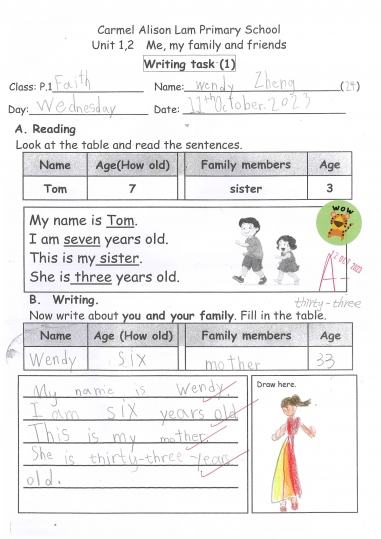 Carmel Alison Lam Primary School
Unit 1,2 Me, my family and friends
Writing task (1)
Class: P.1 Faith Name: Wendy Zheng (24)
Day: Wednesday Date: 11th October. 2023
A. Reading
Look at the table and read the sentences.
Name Age(How old) Family members Age
Tom 7 sister 3
My name is Tom.
I am seven years old.
This is my sister.
She is three years old.
WOW
A-
12 OCT 2023
thirty-three
B. Writing.
Now write about you and your family. Fill in the table.
Name Age (How old) Family members Age
Wendy six mother 33
My name is Wendy.
I am six years old.
This is my mother.
She is thirty-three years
old.
Draw here.